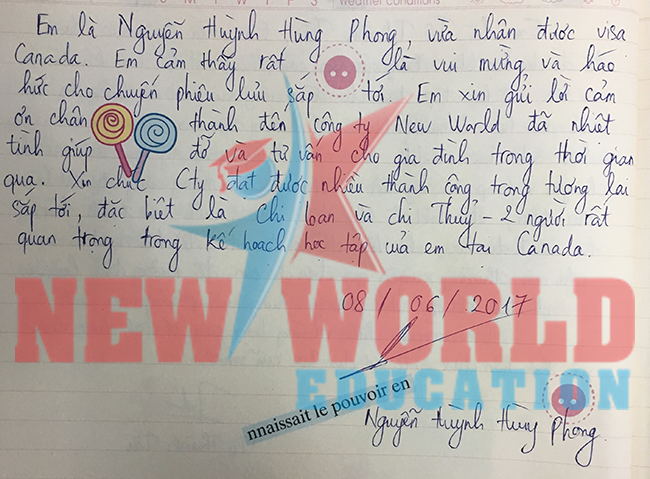 weather conditions
Em là Nguyễn Huỳnh Hùng Phong, vừa nhận được visa
Canada. Em cảm thấy rất là vui mừng và háo
hức cho chuyến phiêu lưu sắp tới. Em xin gửi lời cảm
ơn chân thành đến công ty New World đã nhiệt
tình giúp đỡ và tư vấn cho gia đình trong thời gian
qua. Xin chúc Cty đạt được nhiều thành công trong tương lai
sắp tới, đặc biệt là Chị Loan và chị Thuỷ - 2 người rất
quan trọng trong kế hoạch học tập của em tại Canada.
08 / 06 / 2017
NEW WORLD
EDUCATION
nnaissait le pouvoir en
Nguyễn Huỳnh Hùng Phong.